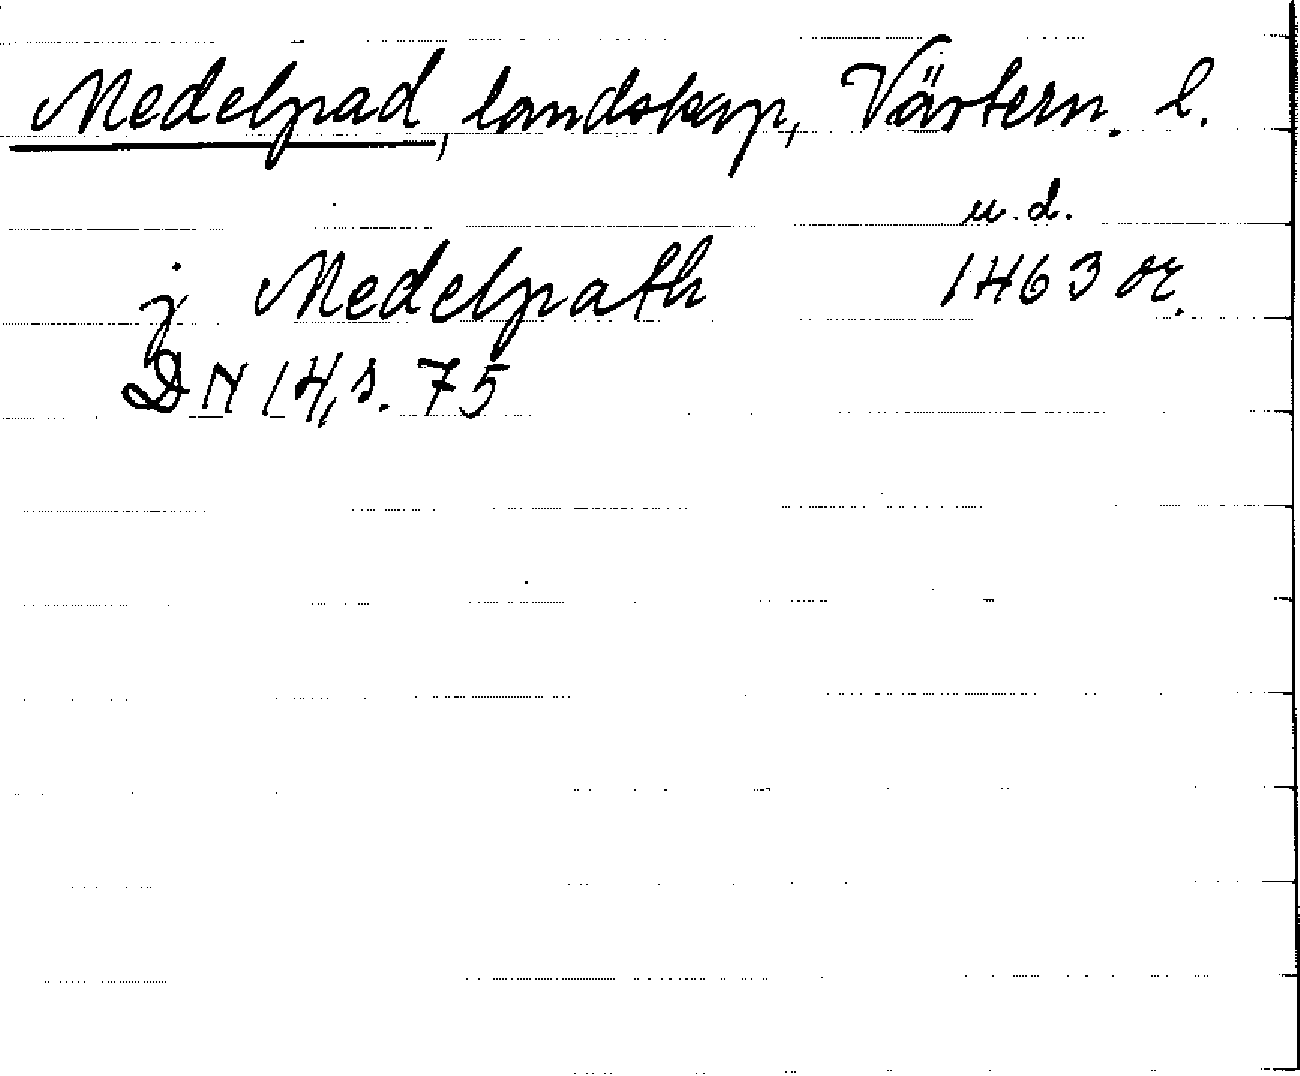 Medelpad, landskap, Västern. l.
u.d.
j Medelpath 1463 or.
DN 14, s. 75